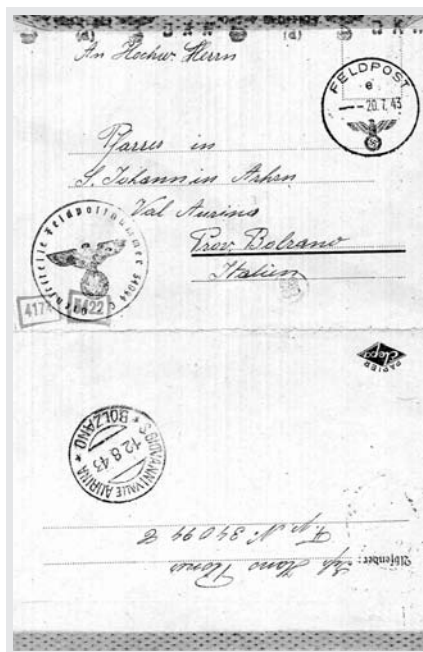 An Hochw. Herrn
FELDPOST
e
20.7.43
Pfarrer in
S. Johann in Ahrn
Val Aurina
Prov. Bolzano
Italien
Feldpostnummer 34044
4174
5422
PAPIER
Elepa
S. GIOVANNI VALLE AURINA * BOLZANO *
12.8.43
F. p. N: 34044 E
Absender: Hans